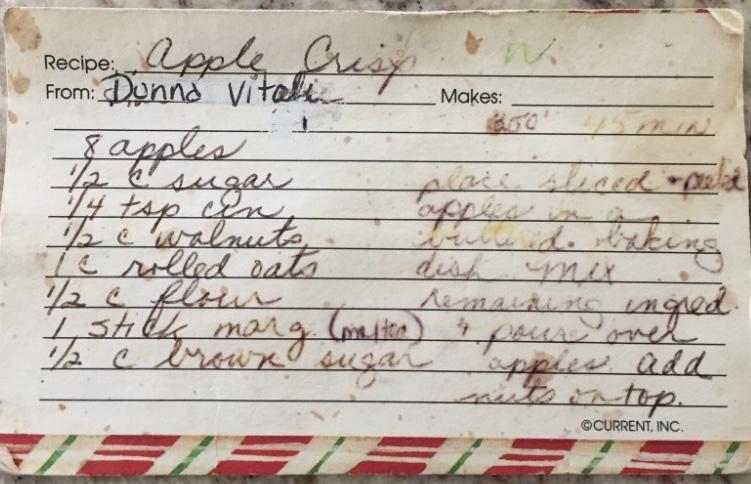 Recipe: Apple Crisp
From: Donna Vitali Makes:
350° 45 min
8 apples
1/2 c sugar
1/4 tsp cin
1/2 c walnuts
1 c rolled oats
1/2 c flour
1 stick marg. (melted)
1/2 c brown sugar
place sliced + peeled
apples in a
buttered baking
dish mix
remaining ingred.
+ pour over
apples. add
nuts on top.
©CURRENT, INC.